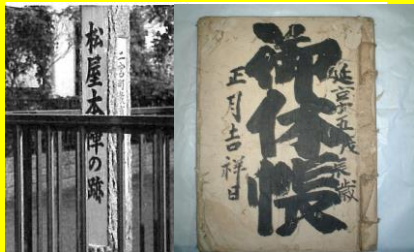 二宮町
松屋本陣の跡
延享五戊辰歳
御休帳
正月吉祥日